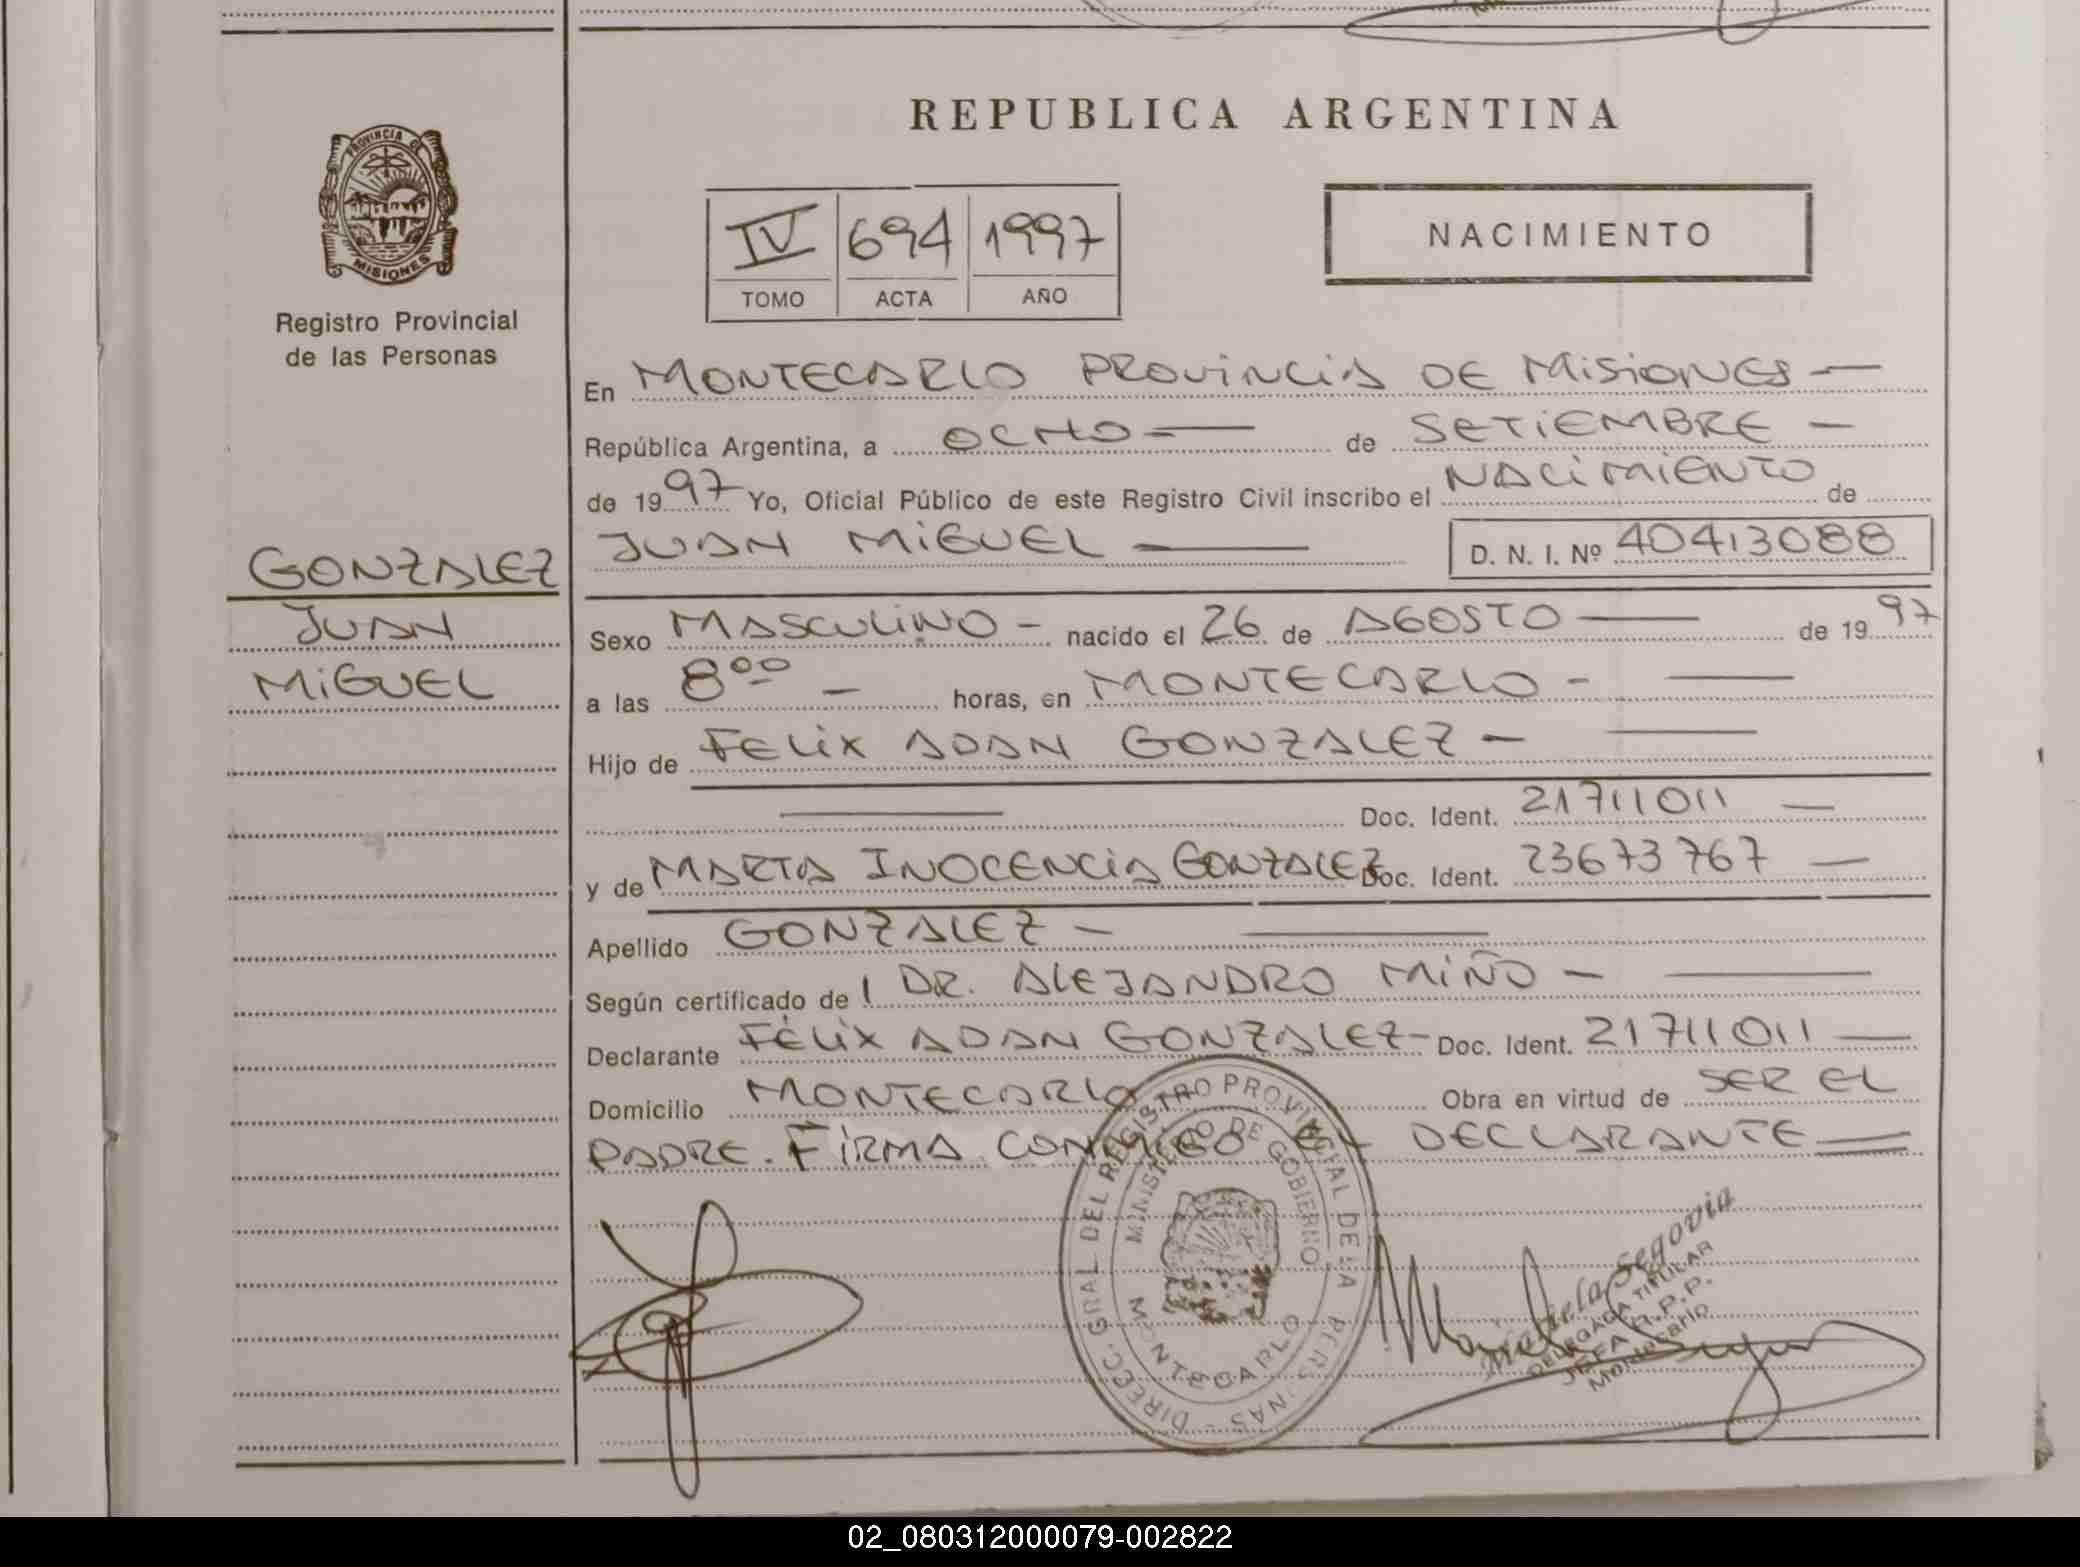 PROVINCIA DE
MISIONES
Registro Provincial
de las Personas
GONZALEZ
JUAN
MIGUEL
REPUBLICA ARGENTINA
IV 694 1997
TOMO ACTA AÑO
NACIMIENTO
En MONTECARLO PROVINCIA DE MISIONES —
República Argentina, a OCHO — de SETIEMBRE —
de 1997 Yo, Oficial Público de este Registro Civil inscribo el NACIMIENTO de
JUAN MIGUEL — D. N. I. Nº 40413088
Sexo MASCULINO - nacido el 26 de AGOSTO — de 1997
a las 8⁰⁰ — horas, en MONTECARLO - —
Hijo de FELIX ADAN GONZALEZ - —
— Doc. Ident. 21711011 —
y de MARTA INOCENCIA GONZALEZ Doc. Ident. 23673767 —
Apellido GONZALEZ - —
Según certificado de l DR. ALEJANDRO MIÑO - —
Declarante FÉLIX ADAN GONZALEZ - Doc. Ident. 21711011 —
Domicilio MONTECARLO Obra en virtud de SER EL
PADRE. FIRMA CONMIGO EL DECLARANTE —
DIRECC. GRAL DEL REGISTRO PROVINCIAL DE LA PERSONAS -
MINISTERIO DE GOBIERNO
MONTECARLO
Mariela Segovia
DELEGADA TITULAR
JEFA R.P.P.
Montecarlo
02_080312000079-002822